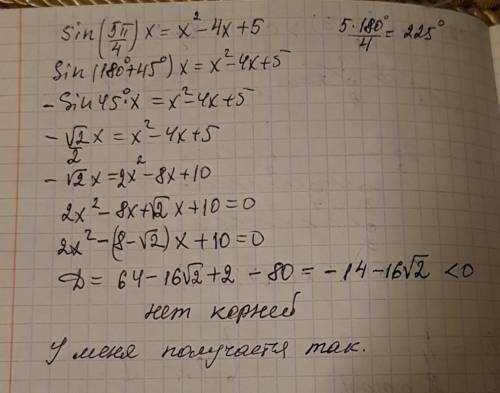 sin(5π/4)x = x²-4x+5
5·180°/4 = 225°
Sin(180°+45°)x = x²-4x+5
-Sin45°·x = x²-4x+5
-√2/2 x = x²-4x+5
-√2x = 2x²-8x+10
2x²-8x+√2x+10=0
2x²-(8-√2)x+10=0
D = 64-16√2+2-80 = -14-16√2 <0
нет корней
У меня получается так.